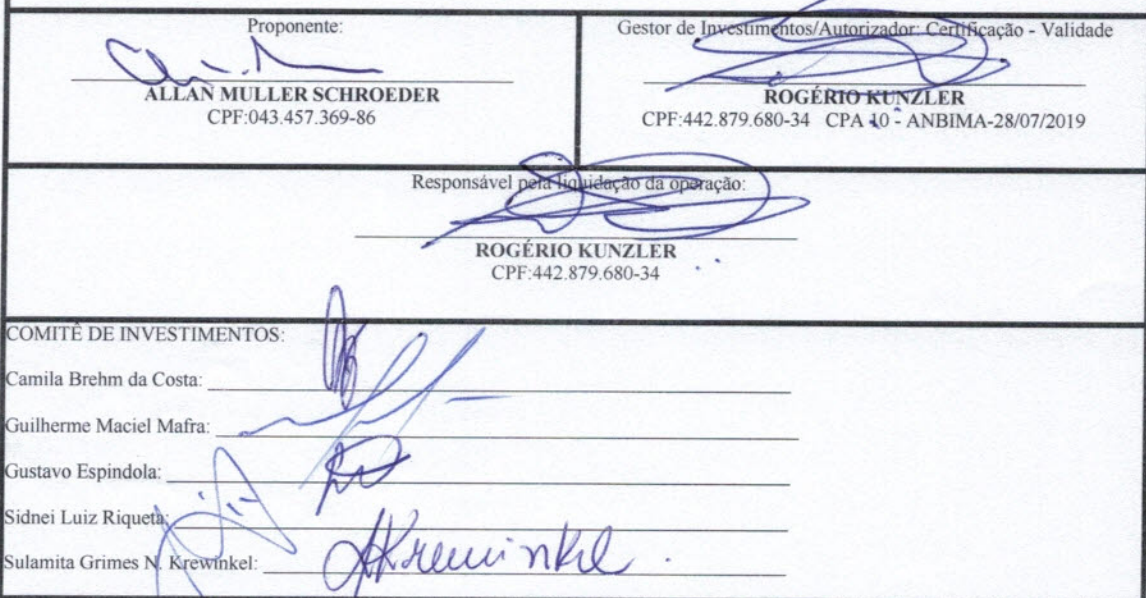 Proponente:
ALLAN MULLER SCHROEDER
CPF:043.457.369-86
Gestor de Investimentos/Autorizador: Certificação - Validade
ROGÉRIO KUNZLER
CPF:442.879.680-34 CPA 10 - ANBIMA-28/07/2019
Responsável pela liquidação da operação:
ROGÉRIO KUNZLER
CPF:442.879.680-34
COMITÊ DE INVESTIMENTOS:
Camila Brehm da Costa:
Guilherme Maciel Mafra:
Gustavo Espindola:
Sidnei Luiz Riqueta:
Sulamita Grimes N. Krewinkel: Krewinkel